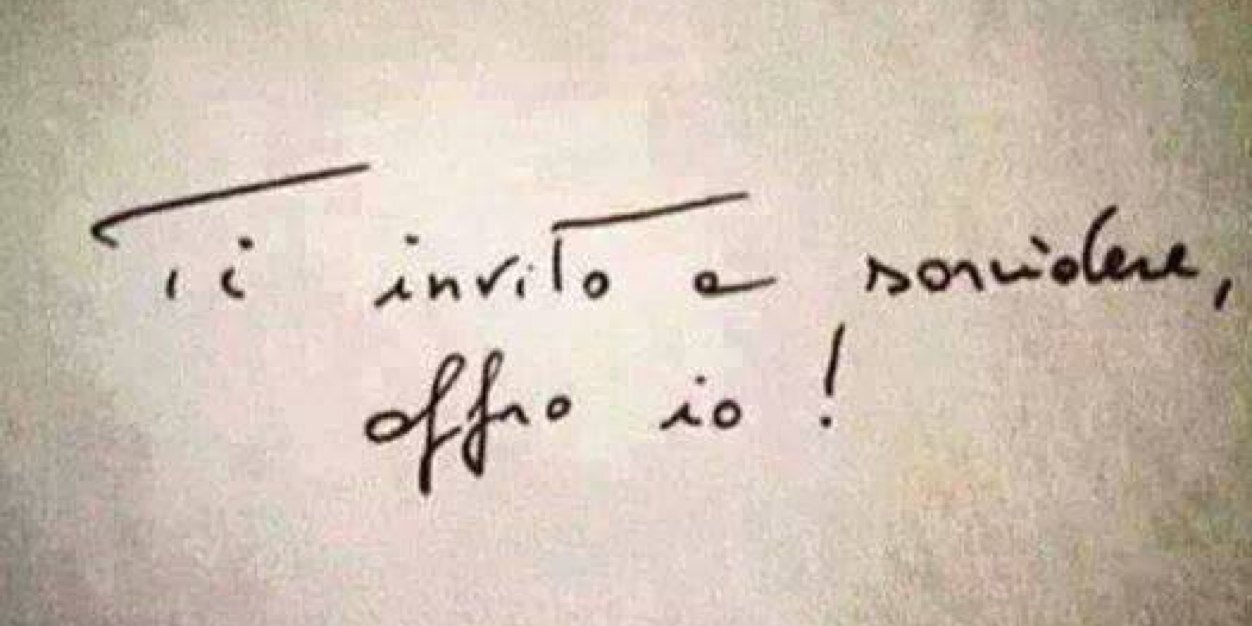 Ti invito a sorridere,
offro io!